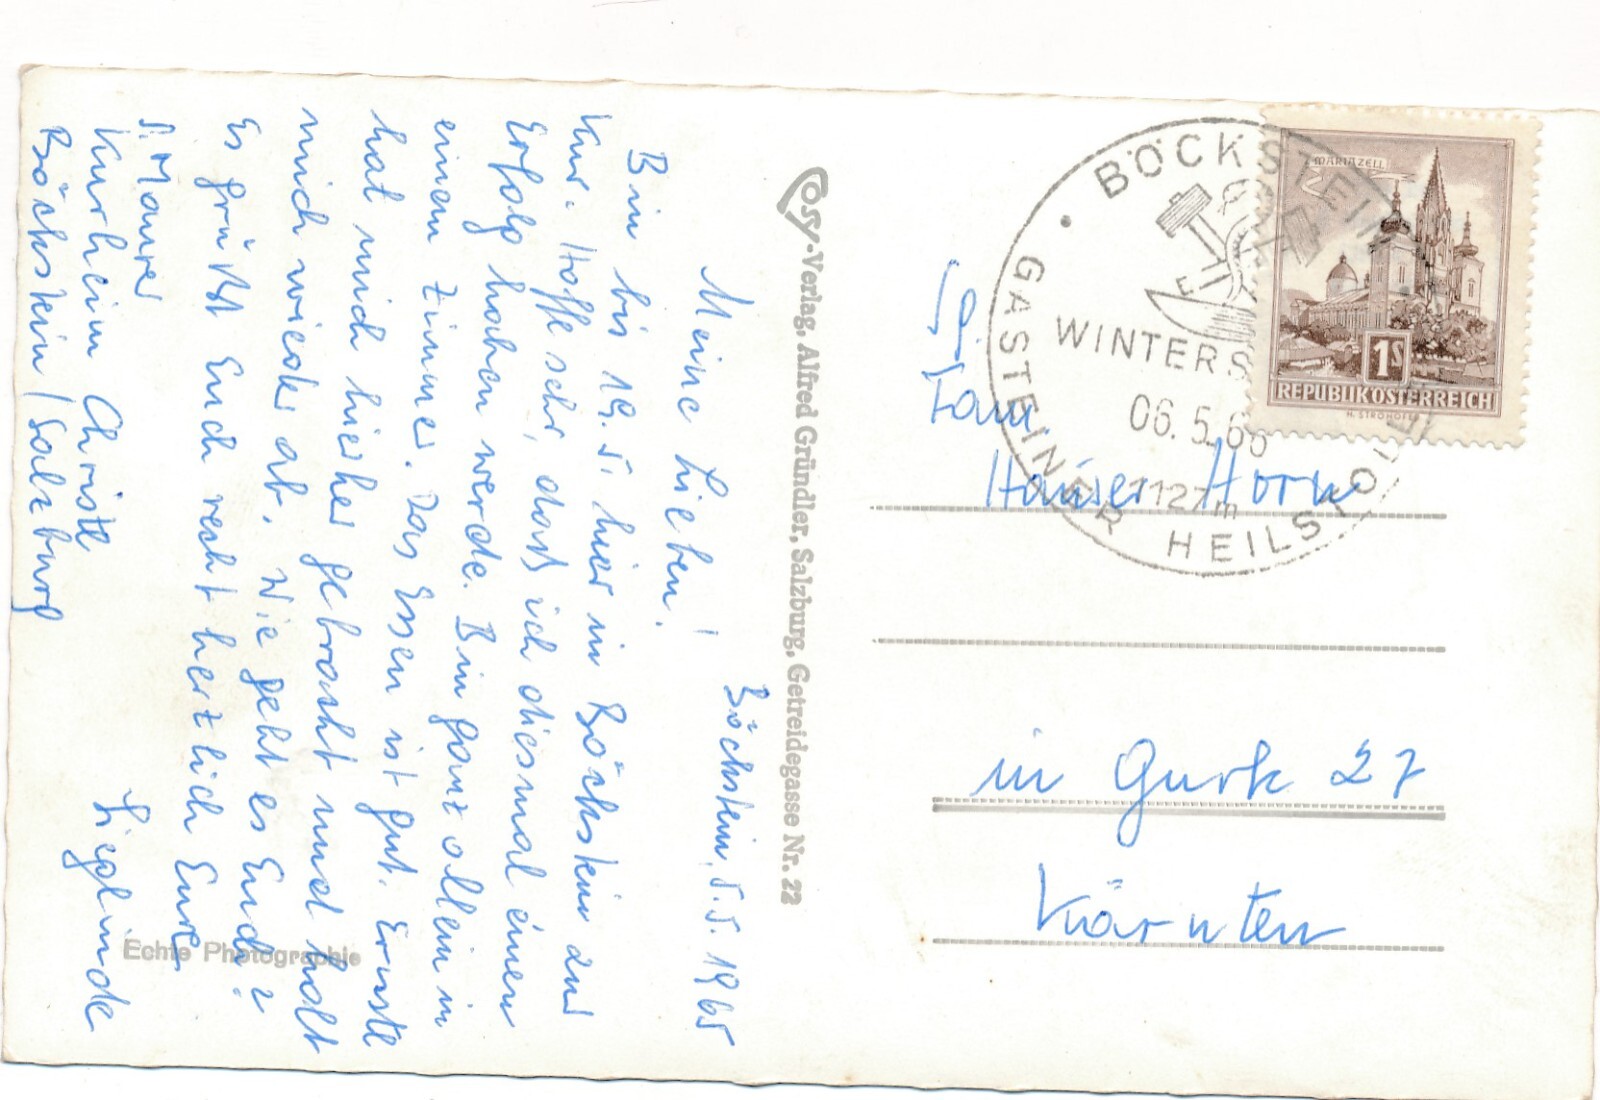 Böckstein, 5.5.1965
Meine Lieben!
Bin bis 19.5. hier in Böckstein zur
Kur. Hoffe sehr, dass ich diesmal einen
Erfolg haben werde. Bin ganz allein in
einem Zimmer. Das Essen ist gut. Ernstl
hat mich hierher gebracht und holt
mich wieder ab. Wie geht es Euch?
Es grüßt Euch recht herzlich Eure
Lieglinde
S. Maurer
Kurheim Christl
Böckstein/Salzburg
Echte Photographie
Cosy-Verlag, Alfred Gründler, Salzburg, Getreidegasse Nr. 22
BÖCKSTEIN
GASTEINER HEILSTO
WINTERS
06.5.66
1127m
MARIAZELL
1S
REPUBLIK ÖSTERREICH
H. STROHOFER
Fam.
Hauser Horn
in Gurk 27
Kärnten